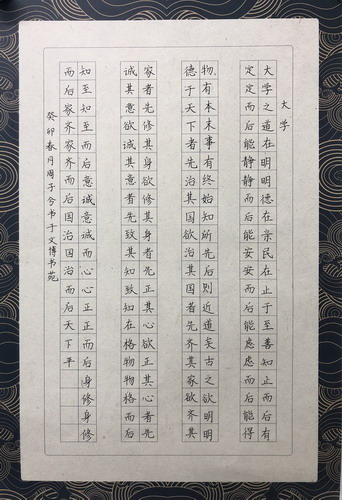 大学
大学之道在明明德在亲民在止于至善知止而后有
定定而后能静静而后能安安而后能虑虑而后能得
物有本末事有终始知所先后则近道矣古之欲明明
德于天下者先治其国欲治其国者先齐其家欲齐其
家者先修其身欲修其身者先正其心欲正其心者先
诚其意欲诚其意者先致其知致知在格物物格而后
知至知至而后意诚意诚而心心正正而后身修身修
而后家齐家齐而后国治国治而后天下平
癸卯春月周子今书于文博书苑